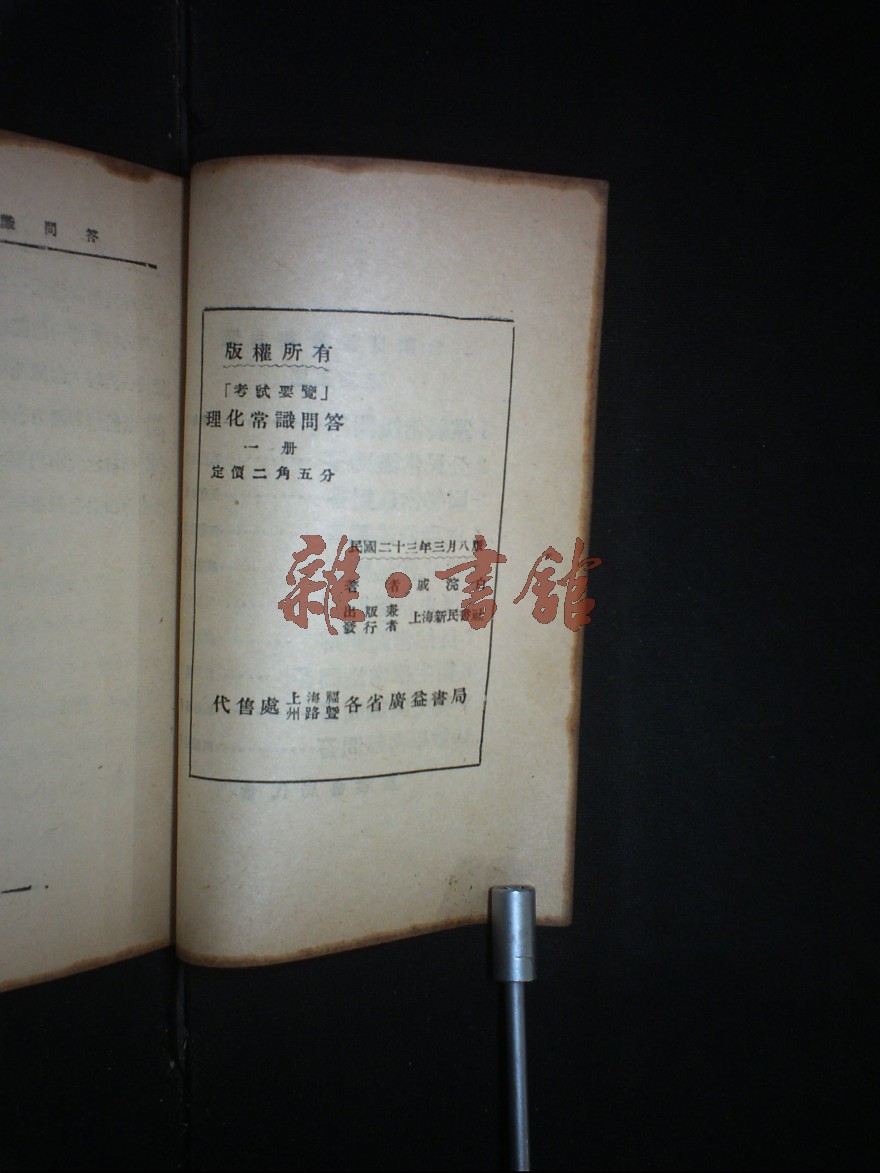 識問答
版權所有
「考試要覽」
理化常識問答
一册
定價二角五分
民國二十三年三月八版
著者戚浣白
出版兼發行者 上海新民書社
代售處 上海福州路暨各省廣益書局
雜·書館